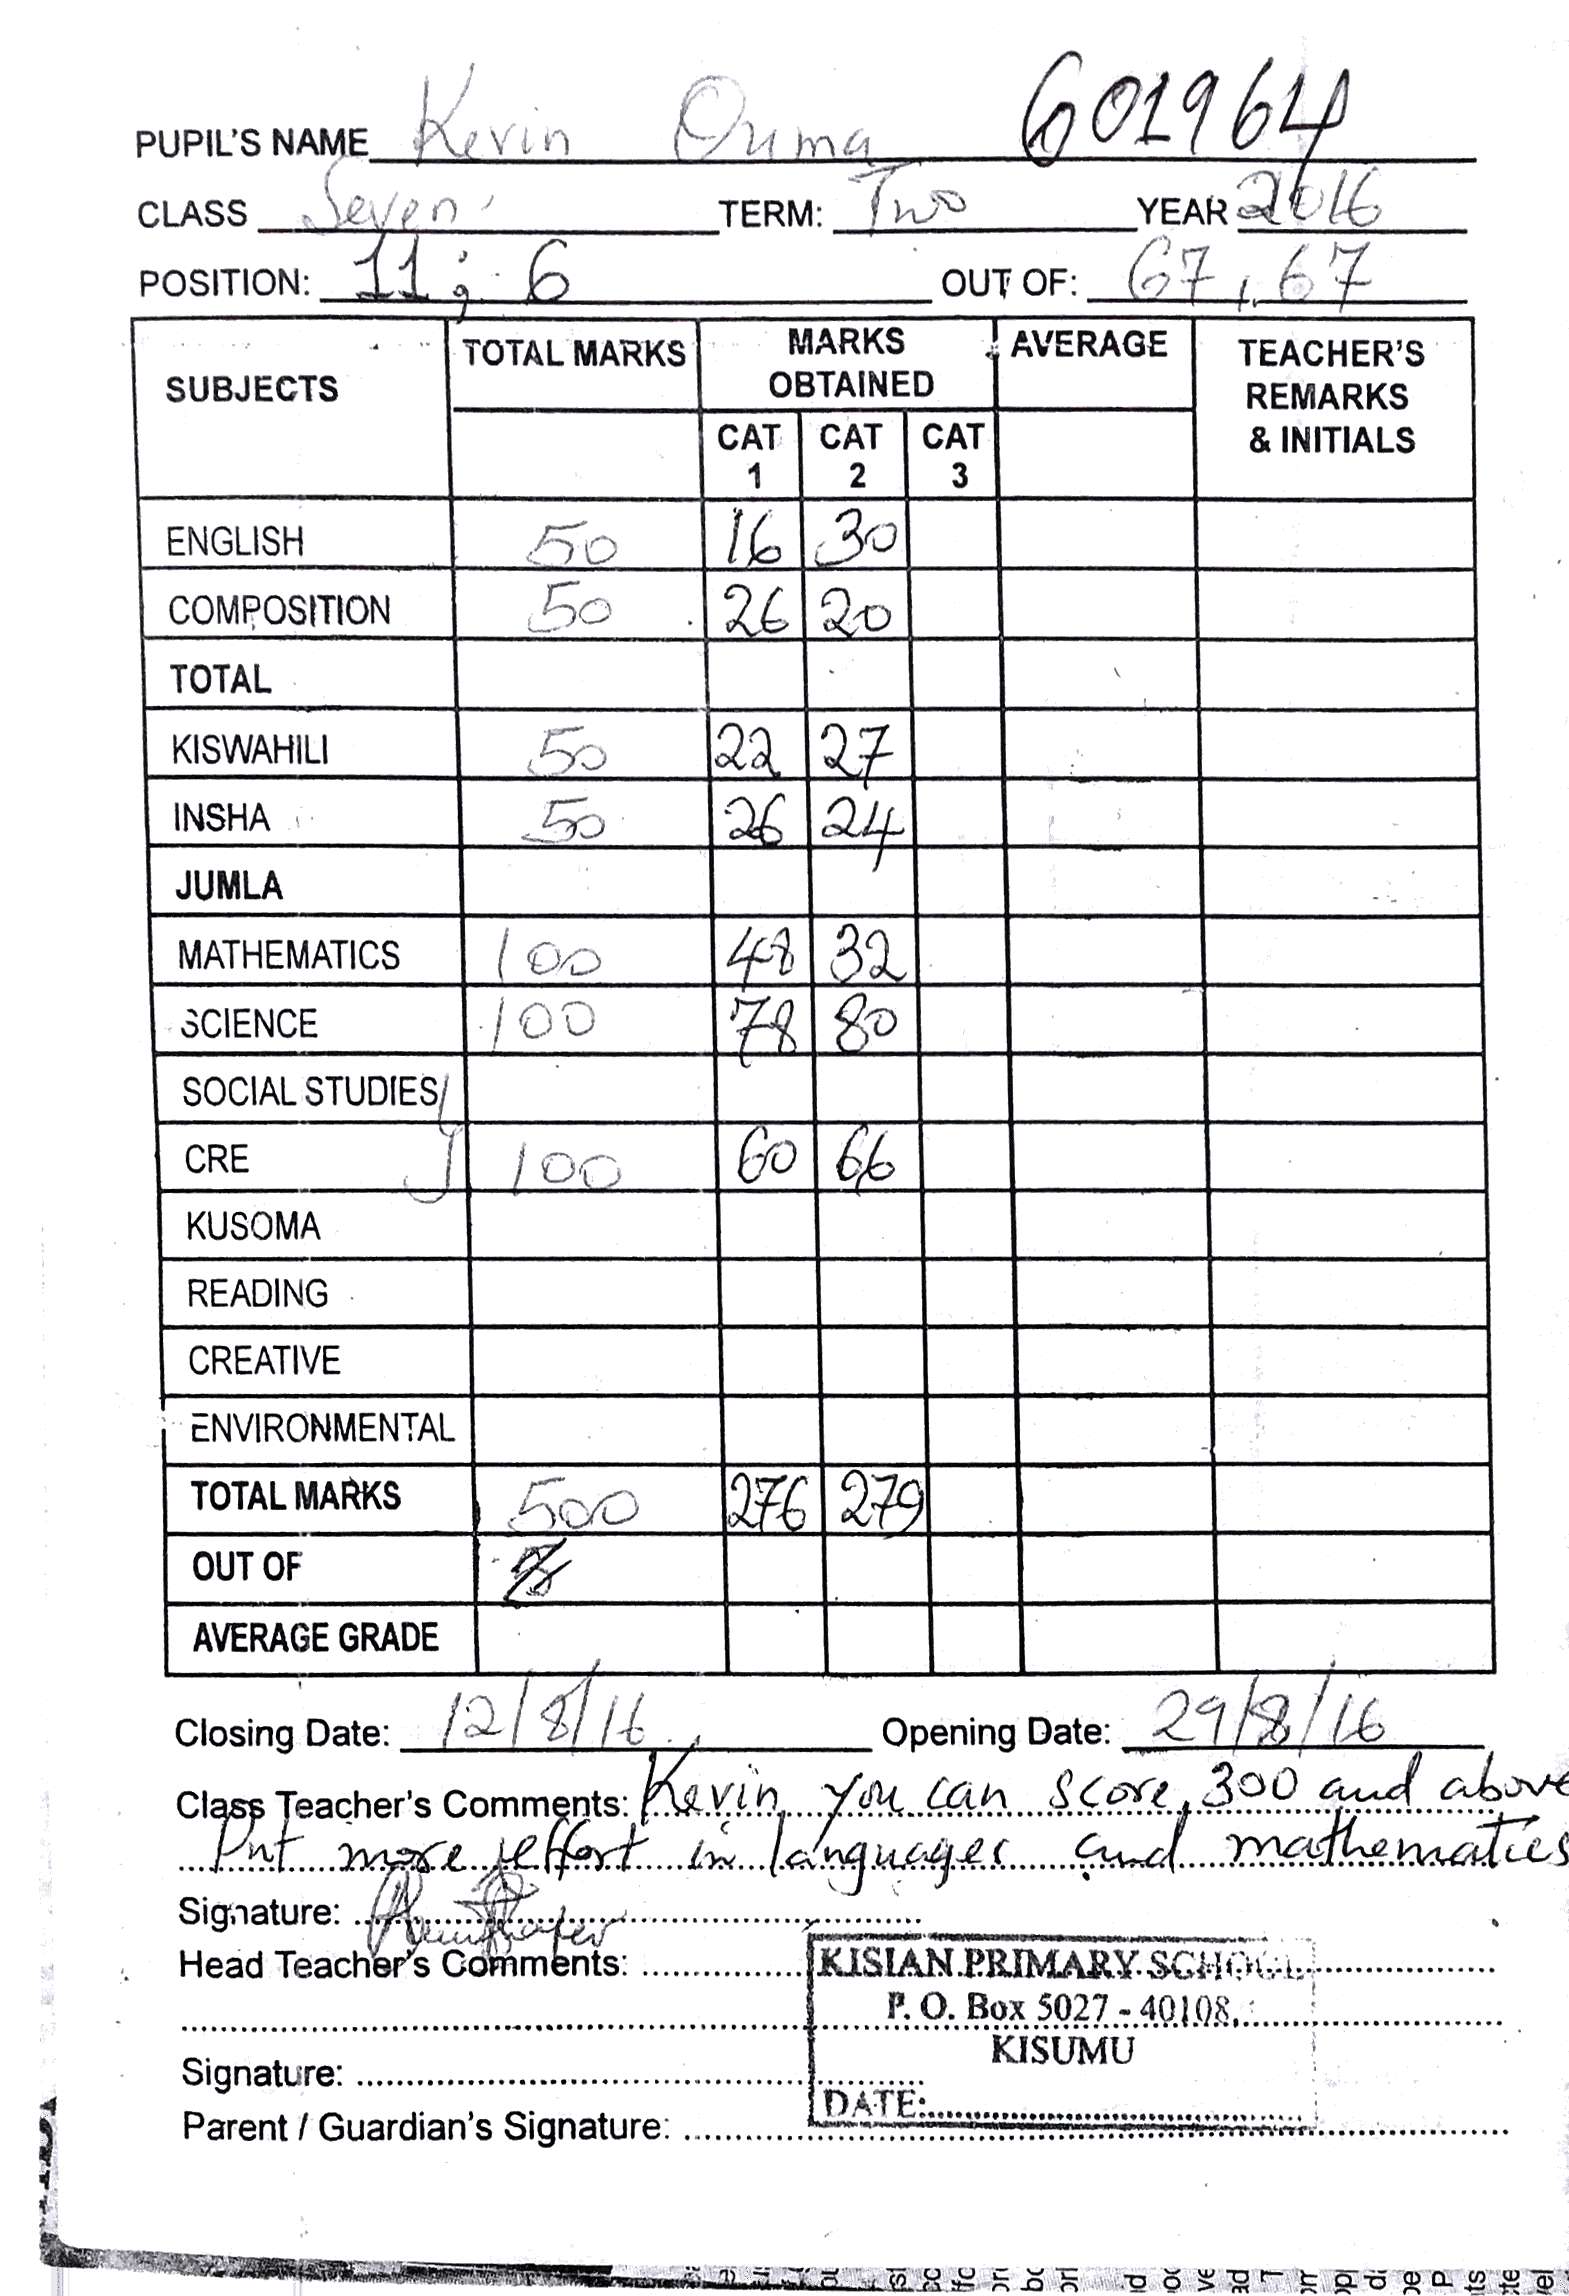 PUPIL'S NAME Kevin Ouma 601964
CLASS Seven TERM: Two YEAR 2016
POSITION: 11 ; 6 OUT OF: 67, 67
SUBJECTS TOTAL MARKS MARKS OBTAINED AVERAGE TEACHER'S REMARKS & INITIALS
CAT 1 CAT 2 CAT 3
ENGLISH 50 16 30
COMPOSITION 50 26 20
TOTAL
KISWAHILI 50 22 27
INSHA 50 26 24
JUMLA
MATHEMATICS 100 48 32
SCIENCE 100 78 80
SOCIAL STUDIES
CRE 100 60 66
KUSOMA
READING
CREATIVE
ENVIRONMENTAL
TOTAL MARKS 500 276 279
OUT OF
AVERAGE GRADE
Closing Date: 12/8/16 Opening Date: 29/8/16
Class Teacher's Comments: Kevin, you can score 300 and above
Put more effort in languages and mathematics
Signature:
Head Teacher's Comments:
KISIAN PRIMARY SCHOOL
P. O. Box 5027 - 40108,
KISUMU
Signature:
DATE:
Parent / Guardian's Signature: